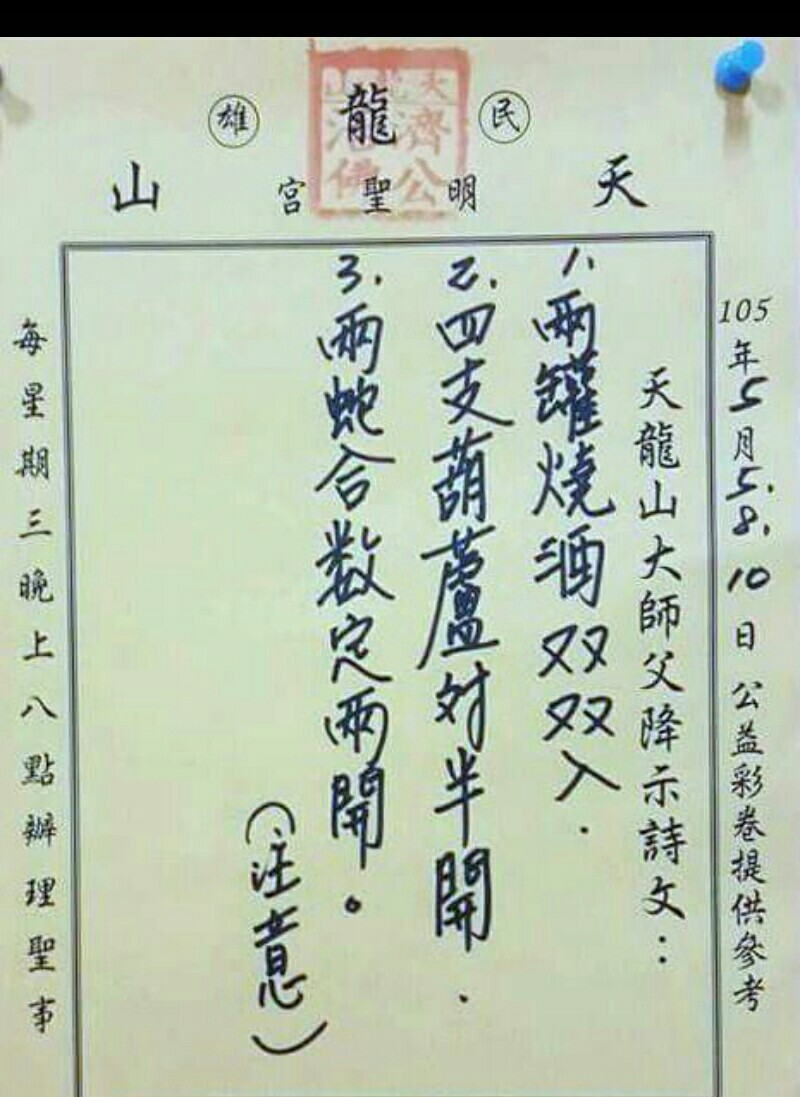 民雄
天龍山
明聖宮
天龍山
濟公
活佛
105年5月5.8.10日公益彩卷提供參考
天龍山大師父降示詩文：
1.兩罐燒酒双双入.
2.四支葫蘆对半開.
3.兩蛇合数定兩開。
(注意)
每星期三晚上八點辦理聖事